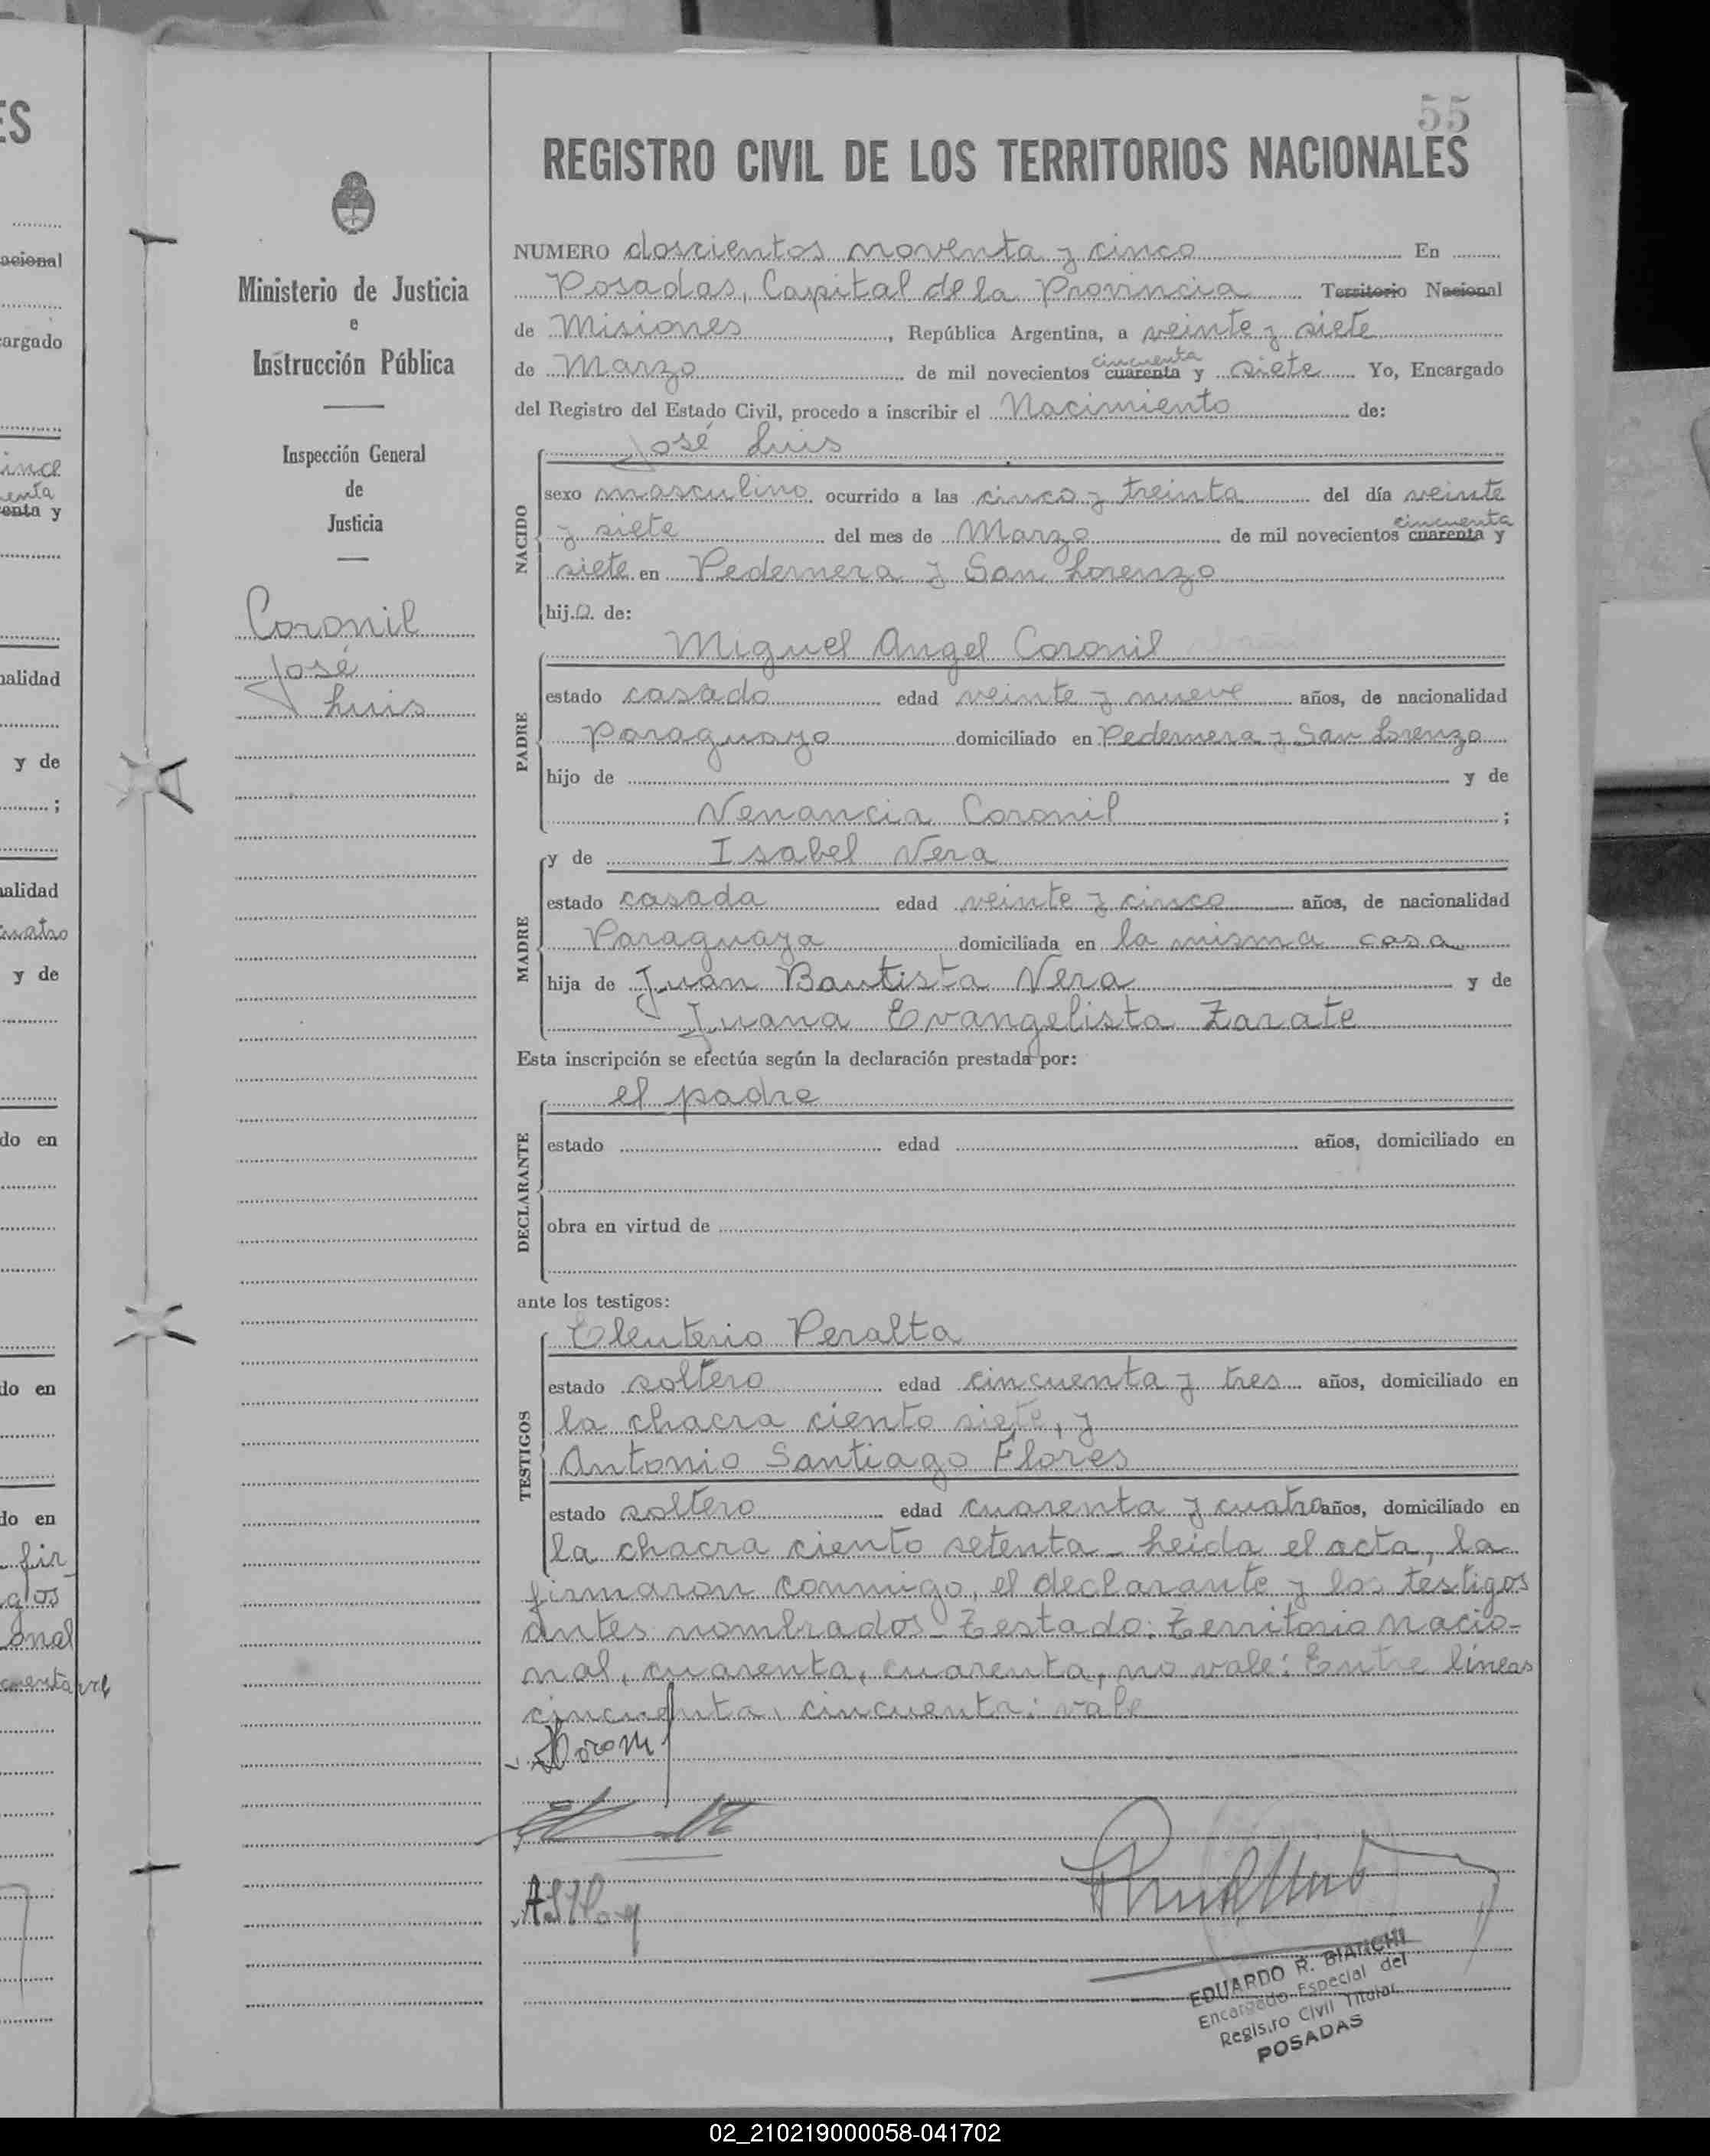 55
REGISTRO CIVIL DE LOS TERRITORIOS NACIONALES
Ministerio de Justicia
e
Instrucción Pública
Inspección General
de
Justicia
Coronil
José
Luis
NUMERO doscientos noventa y cinco En
Posadas, Capital de la Provincia Territorio Nacional
de Misiones, República Argentina, a veinte y siete
de Marzo de mil novecientos cincuenta cuarenta y siete Yo, Encargado
del Registro del Estado Civil, procedo a inscribir el Nacimiento de:
NACIDO
José Luis
sexo masculino ocurrido a las cinco y treinta del día veinte
y siete del mes de Marzo de mil novecientos cincuenta cuarenta y
siete en Pedernera y San Lorenzo
hijo de:
PADRE
Miguel Angel Coronil
estado casado edad veinte y nueve años, de nacionalidad
Paraguayo domiciliado en Pedernera y San Lorenzo
hijo de y de
Venancia Coronil;
MADRE
y de Isabel Vera
estado casada edad veinte y cinco años, de nacionalidad
Paraguaya domiciliada en la misma casa
hija de Juan Bautista Vera y de
Juana Evangelista Zarate
Esta inscripción se efectúa según la declaración prestada por:
DECLARANTE
el padre
estado edad años, domiciliado en
obra en virtud de
ante los testigos:
TESTIGOS
Eleuterio Peralta
estado soltero edad cincuenta y tres años, domiciliado en
la chacra ciento siete, y
Antonio Santiago Flores
estado soltero edad cuarenta y cuatro años, domiciliado en
la chacra ciento setenta - Leida el acta, la
firmaron conmigo, el declarante y los testigos
antes nombrados - Testado: Territorio Nacio-
nal, cuarenta, cuarenta, no vale: Entre lineas
cincuenta, cincuenta: vale
EDUARDO R. BIANCHI
Encargado Especial del
Registro Civil Titular
POSADAS
02_210219000058-041702